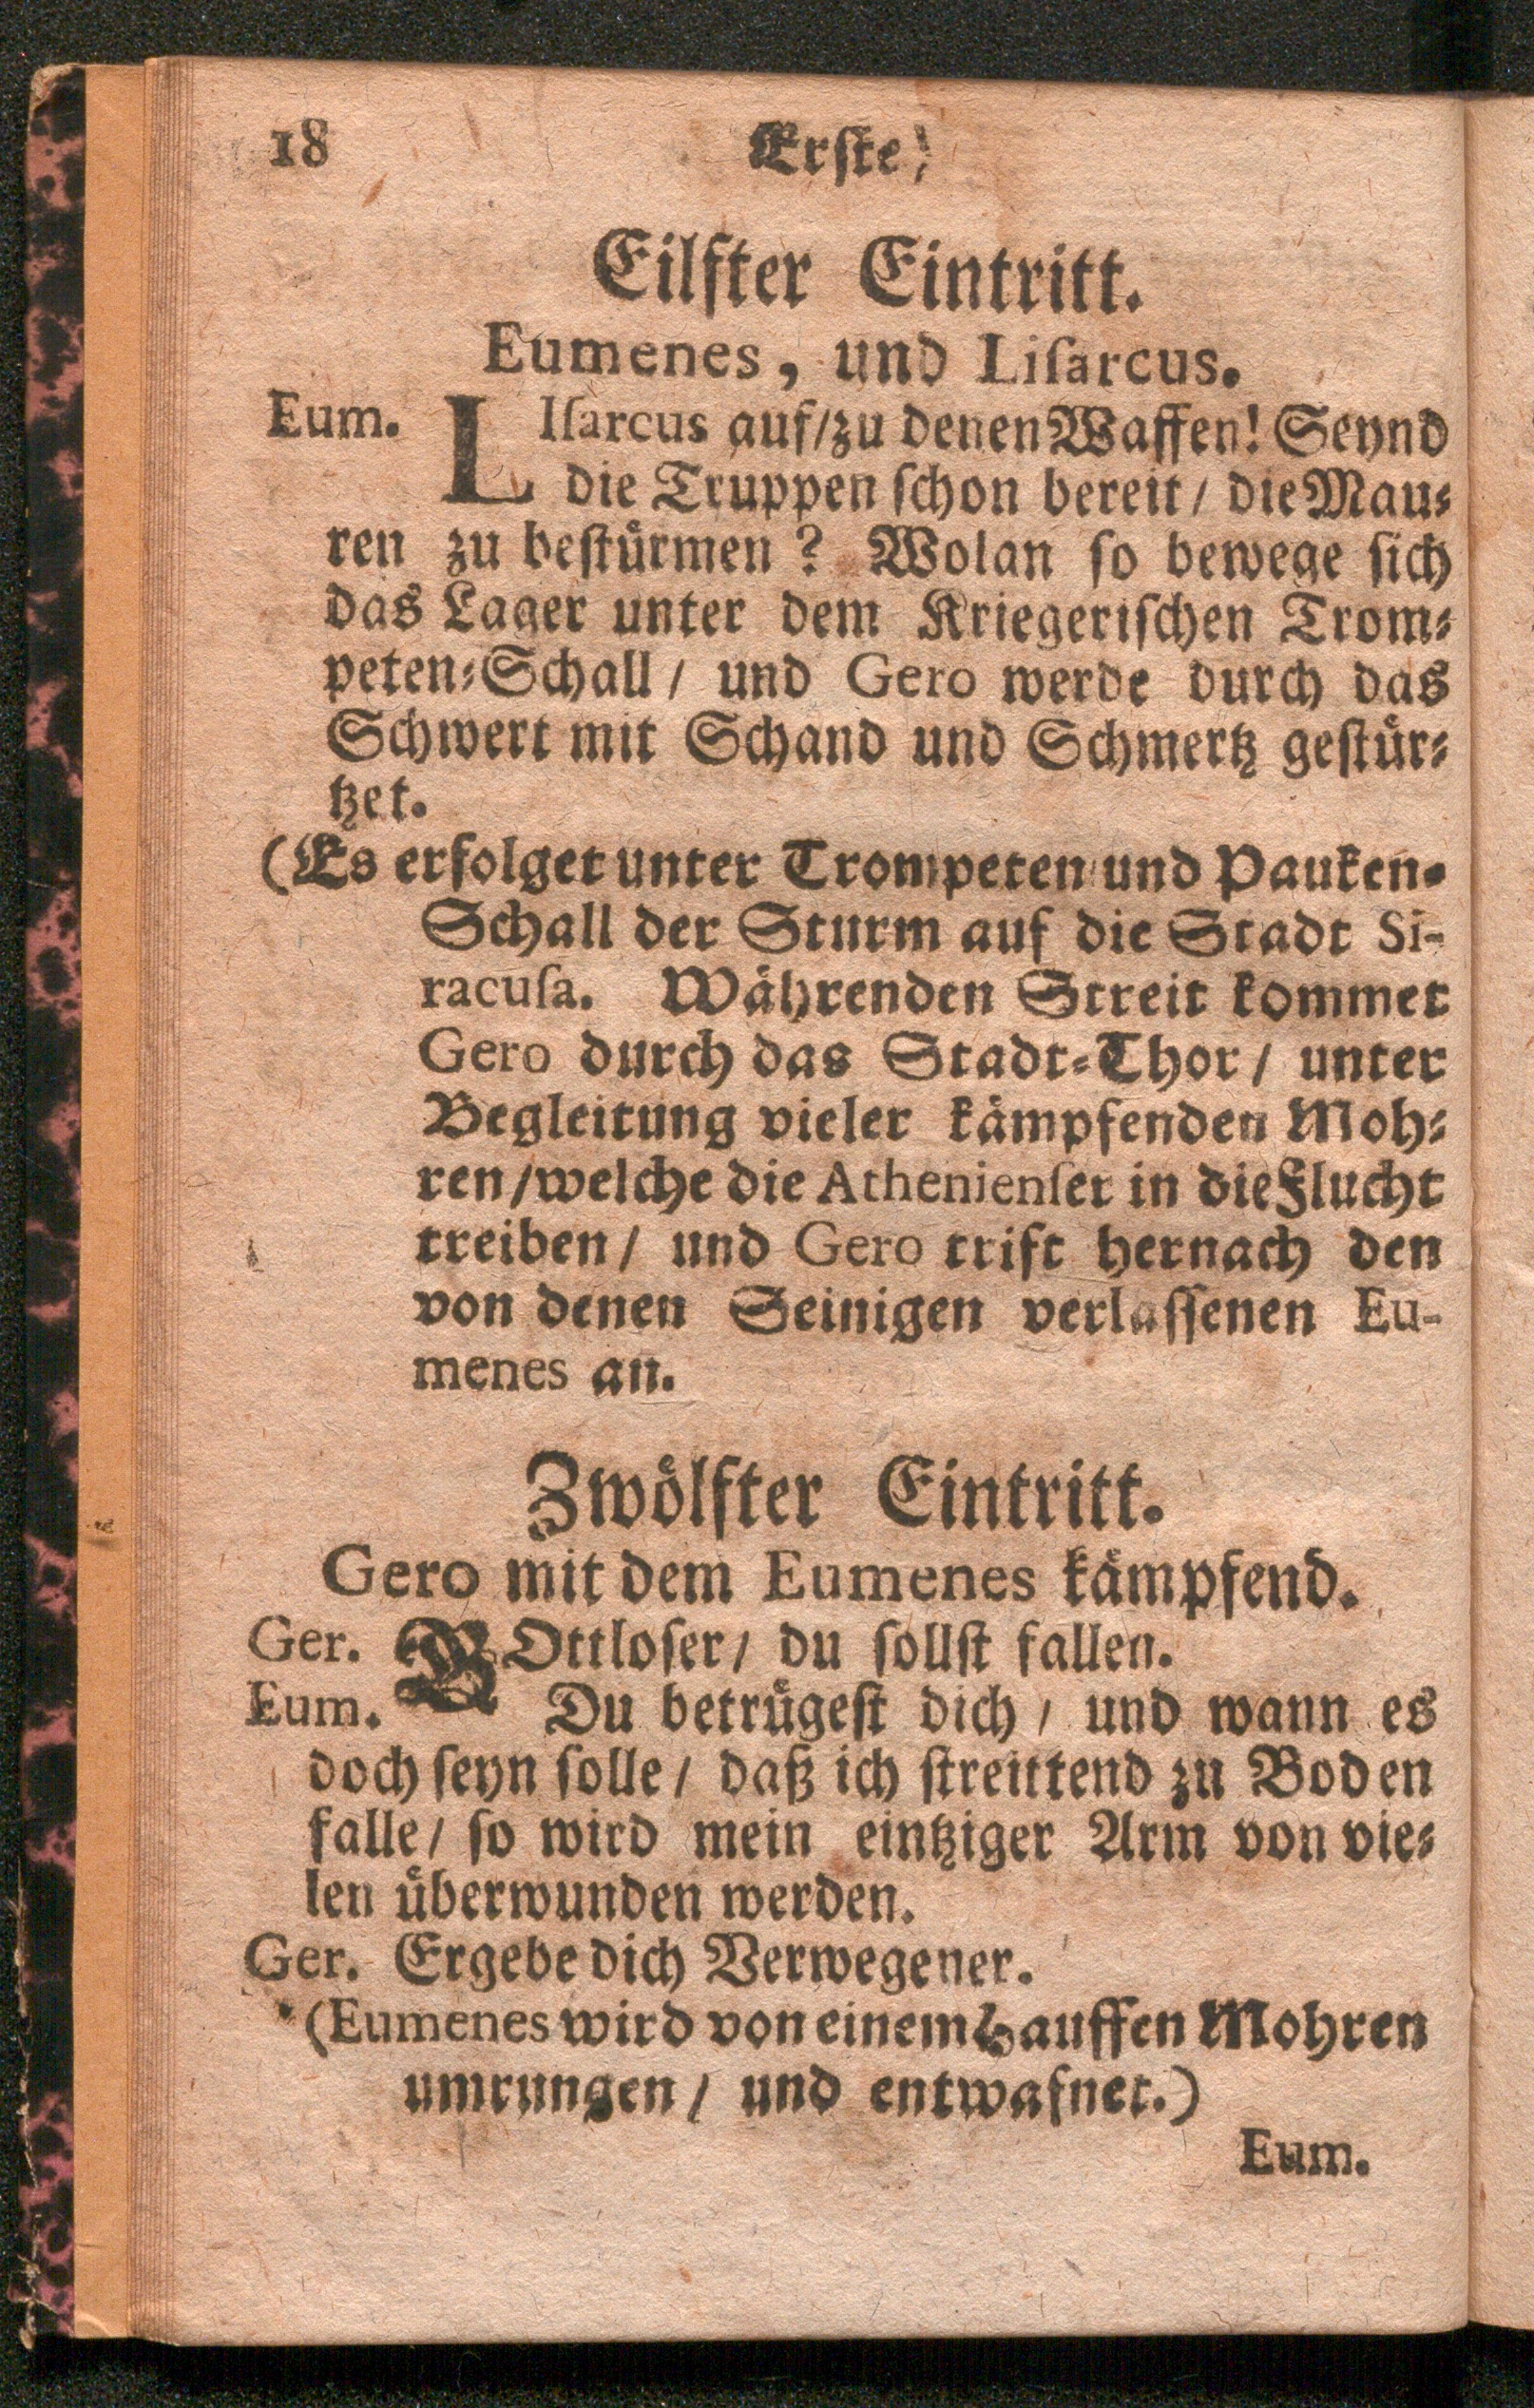 18 Erste/
Eilfter Eintritt.
Eumenes, und Liſarcus.
Eum. LIſarcus auf/zu denen Waffen! Seynd
die Truppen ſchon bereit/ die Mau⸗
ren zu beſtuͤrmen? Wolan ſo bewege ſich
das Lager unter dem Kriegeriſchen Trom⸗
peten⸗Schall/ und Gero werde durch das
Schwert mit Schand und Schmertz geſtuͤr⸗
tzet.
(Es erfolget unter Trompeten und Pauken⸗
Schall der Sturm auf die Stadt Si-
racuſa. Waͤhrenden Streit kommet
Gero durch das Stadt⸗Thor/ unter
Begleitung vieler kaͤmpfenden Moh⸗
ren/welche die Athenienſer in die Flucht
treiben/ und Gero trift hernach den
von denen Seinigen verlaſſenen Eu-
menes an.
Zwoͤlfter Eintritt.
Gero mit dem Eumenes kaͤmpfend.
Ger. GOttloſer/ du ſollſt fallen.
Eum. Du betruͤgeſt dich/ und wann es
doch ſeyn ſolle/ daß ich ſtreittend zu Boden
falle/ ſo wird mein eintziger Arm von vie⸗
len uͤberwunden werden.
Ger. Ergebe dich Verwegener.
(Eumenes wird von einem Hauffen Mohren
umrungen/ und entwafnet.)
Eum.